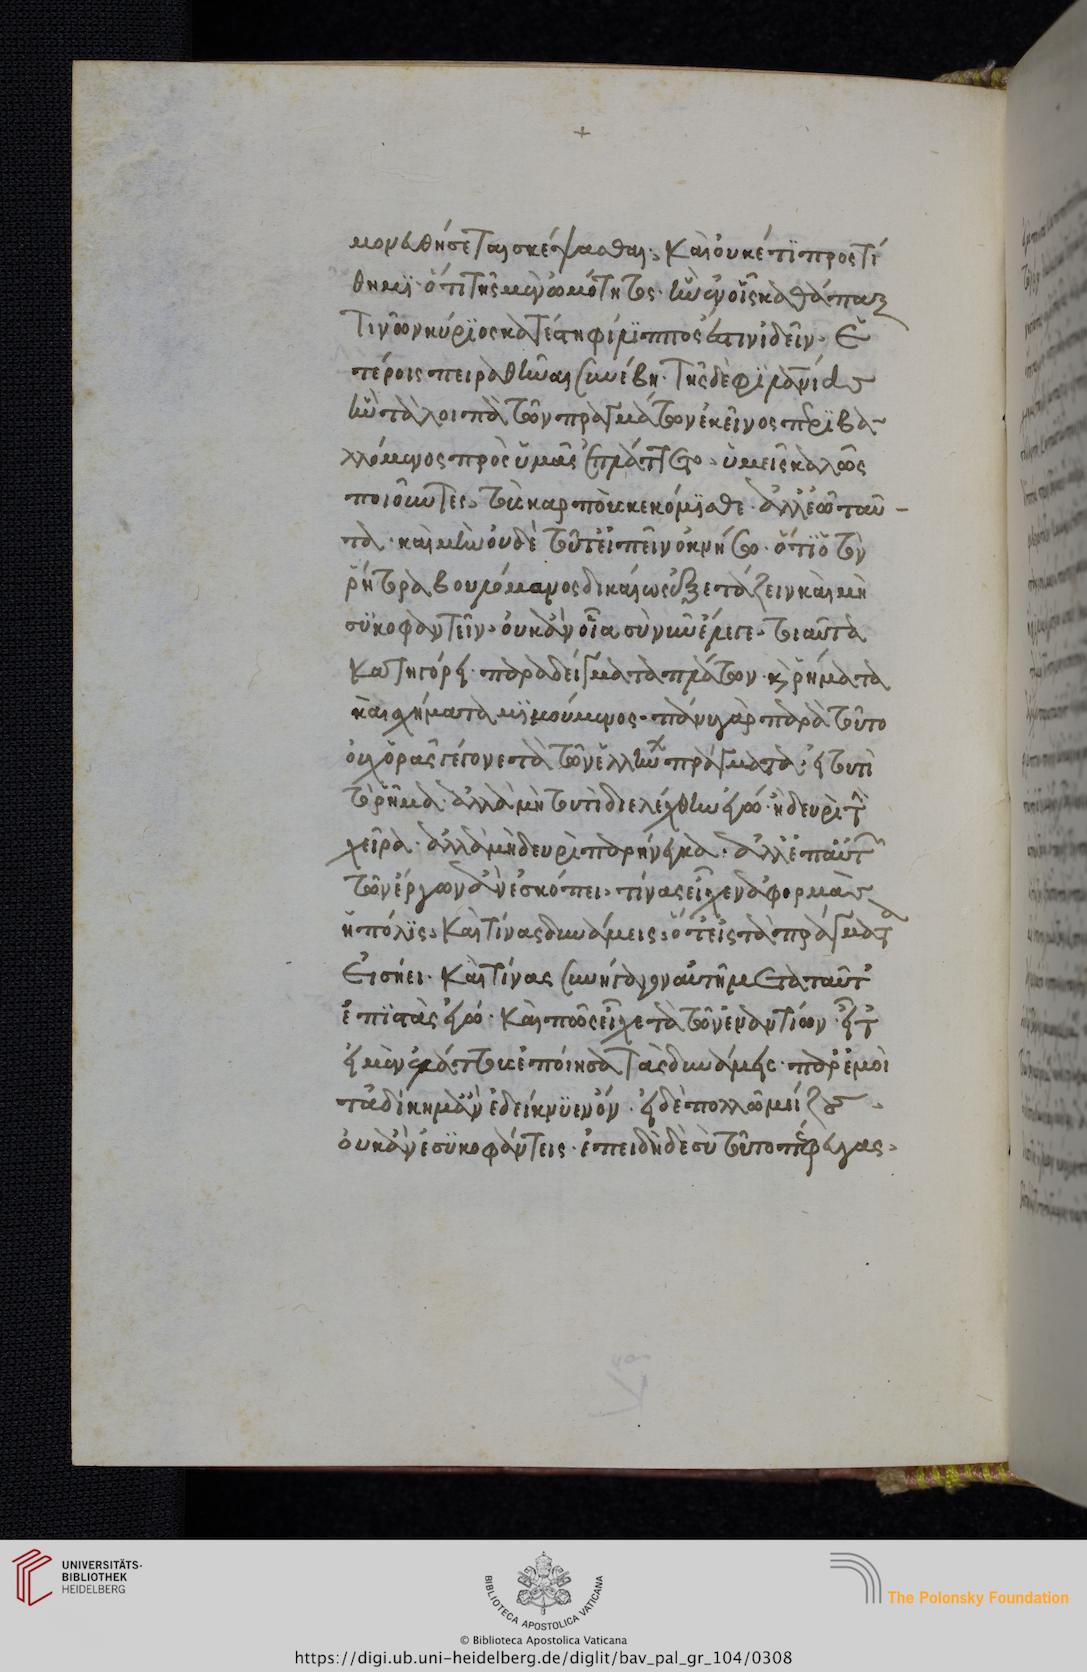 +
μον δεήσεται σκέψασθαι· καὶ οὐκέτι προστί
θημι· ὅτι τῆς μὲν ὠμότητος· ἣν ἐν οἷς καθάπαξ
τινῶν κύριος κατέστη φίλιππος ἔστιν ἰδεῖν· ἑ
τέροις πειραθῆναι συνέβη· τῆς δὲ φιλανθρωπίας
ἣν τὰ λοιπὰ τῶν πραγμάτων ἐκεῖνος περιβα
λλόμενος πρὸς ὑμᾶς ἐπλάττετο· ὑμεῖς καλῶς
ποιοῦντες· τοὺς καρποὺς κεκόμισθε· ἀλλ' ἐῶ ταῦ-
τα· καὶ μὴν οὐδὲ τοῦτ' εἰπεῖν ὀκνήσω· ὅτι ὁ τὸν
ῥήτορα βουλόμενος δικαίως ἐξετάζειν καὶ μὴ
συκοφαντεῖν· οὐκ ἂν οἷα σὺ νῦν ἔλεγες· τοιαῦτα
κατηγόρει· παραδείγματα πλάττων· καὶ ῥήματα
καὶ σχήματα μιμούμενος· πάνυ γὰρ παρὰ τοῦτο
οὐχ ὁρᾷς γέγονε τὰ τῶν ἑλλήνων πράγματα· εἰ τουτὶ
τὸ ῥῆμα· ἀλλὰ μὴ τουτὶ διελέχθην ἐγώ· ἢ δευρὶ τὴν
χεῖρα· ἀλλὰ μὴ δευρὶ παρήνεγκα· ἀλλ' ἐπ' αὐτῶν
τῶν ἔργων ἂν ἐσκόπει· τίνας εἶχεν ἀφορμὰς
ἡ πόλις· καὶ τίνας δυνάμεις· ὅτ' εἰς τὰ πράγματα
εἰσῄει· καὶ τίνας συνήγαγον αὐτῇ μετὰ ταῦτ'
ἐπιστὰς ἐγώ· καὶ πῶς εἶχε τὰ τῶν ἐναντίων· εἶτ'
εἰ μὲν ἐλάττους ἐποίησα τὰς δυνάμεις· παρ' ἐμοὶ
τἀδίκημ' ἂν ἐδείκνυεν ὄν· εἰ δὲ πολλῷ μείζους·
οὐκ ἂν ἐσυκοφάντεις· ἐπειδὴ δὲ σὺ τοῦτο πέφευγας·
UNIVERSITÄTS-
BIBLIOTHEK
HEIDELBERG
BIBLIOTECA APOSTOLICA VATICANA
The Polonsky Foundation
© Biblioteca Apostolica Vaticana
https://digi.ub.uni-heidelberg.de/diglit/bav_pal_gr_104/0308